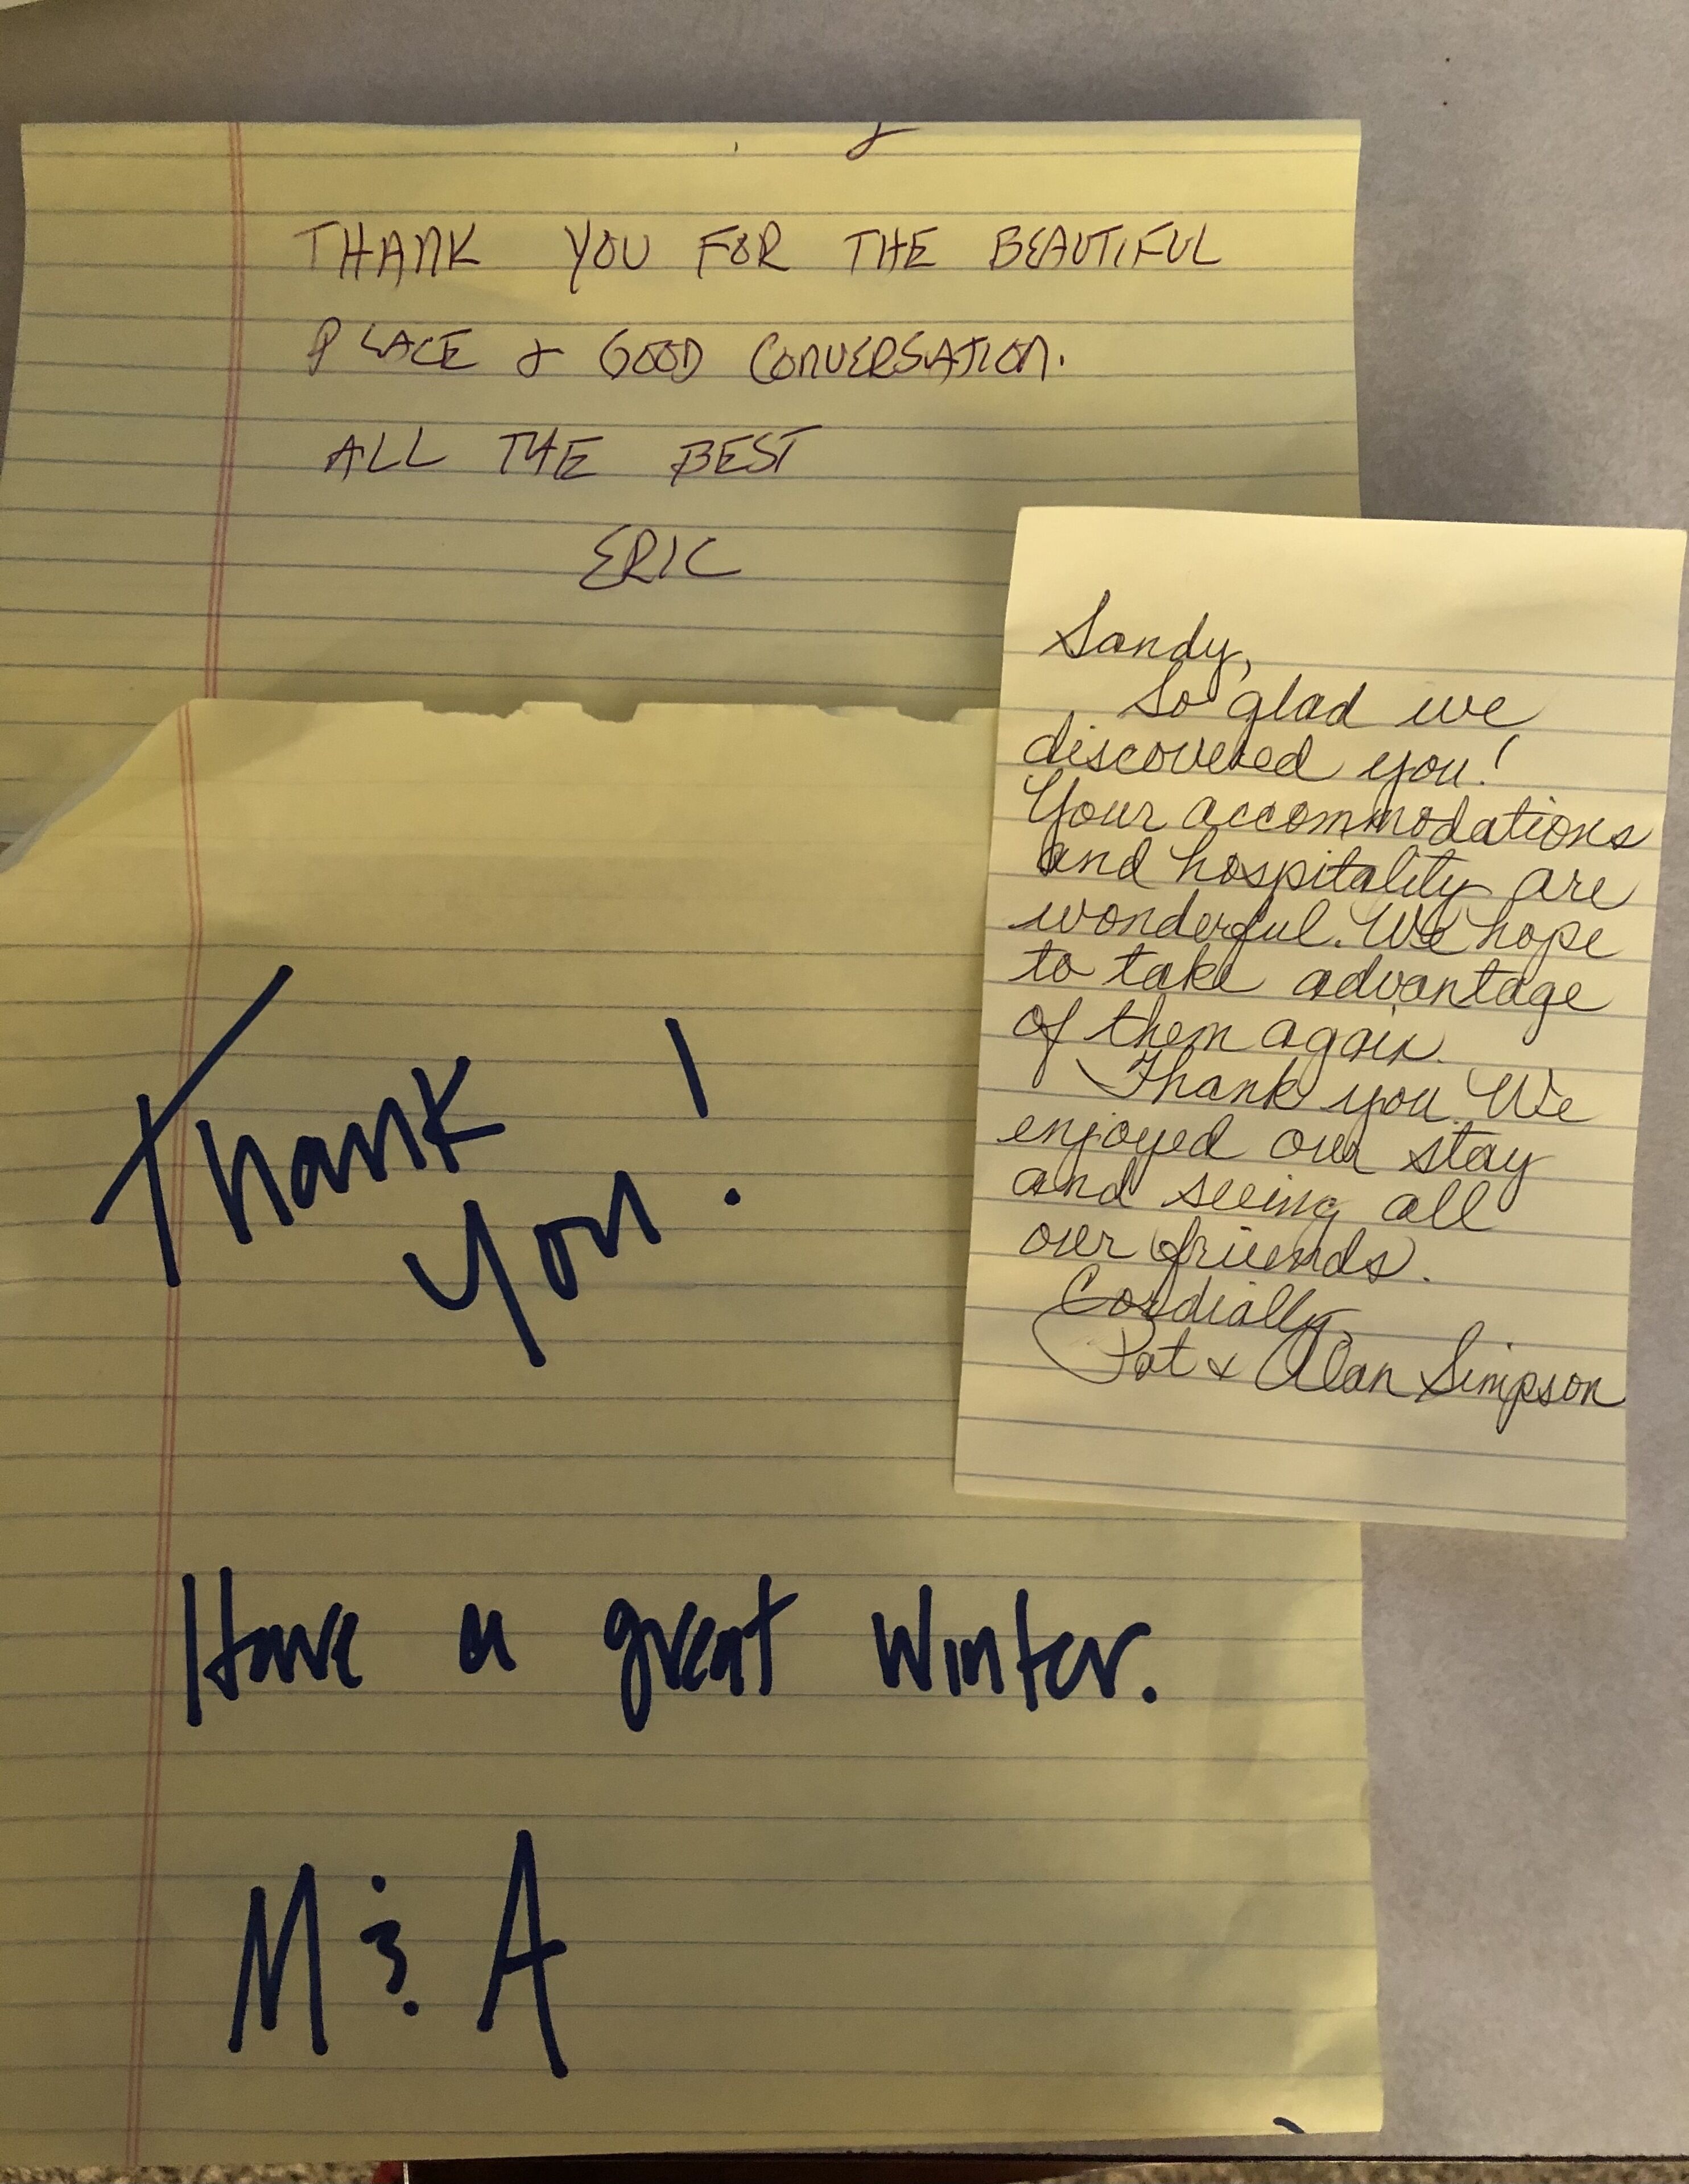 THANK YOU FOR THE BEAUTIFUL
PLACE & GOOD CONVERSATION.
ALL THE BEST
ERIC
Sandy,
So glad we
discovered you!
Your accommodations
and hospitality are
wonderful. We hope
to take advantage
of them again.
Thank you. We
enjoyed our stay
and seeing all
our friends.
Cordially,
Pat & Alan Simpson
Thank
You!
Have a great Winter.
M & A